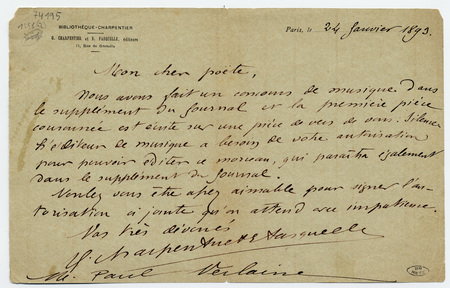 74195
BIBLIOTHÈQUE-CHARPENTIER
G. CHARPENTIER et E. FASQUELLE, éditeurs
11, Rue de Grenelle
Paris, le 24 Janvier 1893.
Mon cher poëte,
Nous avons fait un concours de musique dans
le supplément du Journal et la première pièce
couronnée est écrite sur une pièce de vers de vous : Silence
L'éditeur de musique a besoin de votre autorisation
pour pouvoir éditer ce morceau, qui paraîtra également
dans le supplément du Journal.
Voulez vous être assez aimable pour signer l'au-
torisation ci jointe qu'on attend avec impatience.
Vos très dévoués
G. Charpentier et E. Fasquelle
M. Paul Verlaine